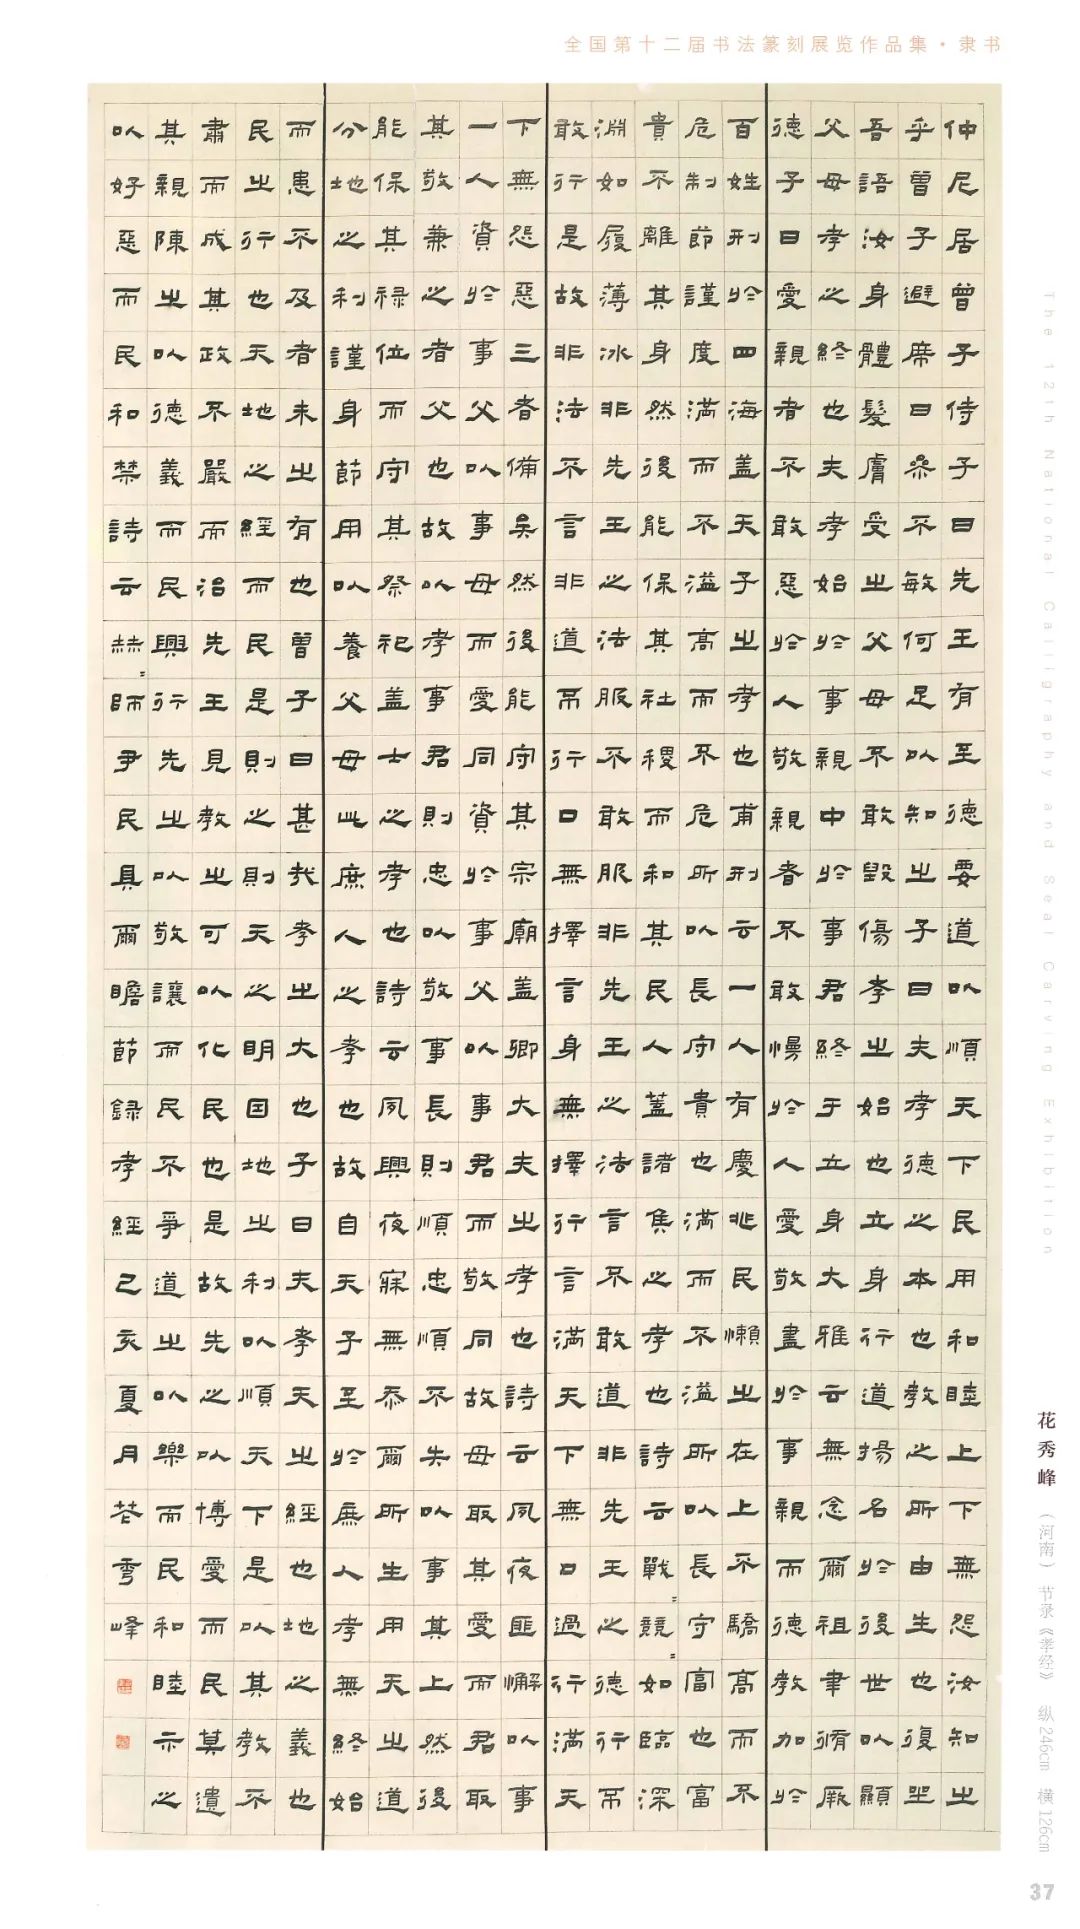 全国第十二届书法篆刻展览作品集·隶书
仲尼居曾子侍子曰先王有至德要道以順天下民用和睦上下無怨汝知之
乎曾子避席曰參不敏何足以知之子曰夫孝德之本也教之所由生也復坐
吾語汝身體髮膚受之父母不敢毀傷孝之始也立身行道揚名於後世以顯
父母孝之終也夫孝始於事親中於事君終于立身大雅云無念爾祖聿脩厥
德子曰愛親者不敢惡於人敬親者不敢慢於人愛敬盡於事親而德教加於
百姓刑於四海蓋天子之孝也甫刑云一人有慶兆民懶之在上不驕高而不
危制節謹度滿而不溢高而不危所以長守貴也滿而不溢所以長守富也富
貴不離其身然後能保其社稷而和其民人蓋諸侯之孝也詩云戰〻競〻如臨深
淵如履薄冰非先王之法服不敢服非先王之法言不敢道非先王之德行不
敢行是故非法不言非道不行口無擇言身無擇行言滿天下無口過行滿天
下無怨惡三者備矣然後能守其宗廟蓋卿大夫之孝也詩云夙夜匪懈以事
一人資於事父以事母而愛同資於事父以事君而敬同故母取其愛而君取
其敬兼之者父也故以孝事君則忠以敬事長則順忠順不失以事其上然後
能保其祿位而守其祭祀蓋士之孝也詩云夙興夜寐無忝爾所生用天之道
分地之利謹身節用以養父母此庶人之孝也故自天子至於庶人孝無終始
而患不及者未之有也曾子曰甚哉孝之大也子曰夫孝天之經也地之義也
民之行也天地之經而民是則之則天之明因地之利以順天下是以其教不
肅而成其政不嚴而治先王見教之可以化民也是故先之以博愛而民莫遺
其親陳之以德義而民興行先之以敬讓而民不爭道之以樂而民和睦示之
以好惡而民和禁詩云赫〻師尹民具爾瞻節錄孝經己亥夏月花秀峰
The 12th National Calligraphy and Seal Carving Exhibition
花秀峰（河南）节录《孝经》 纵246cm 横126cm
37